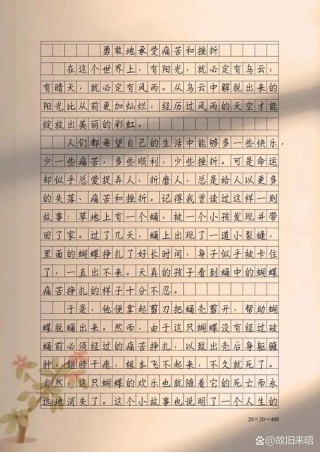 勇敢地承受痛苦和挫折
在这个世界上，有阳光，就必定有乌云；
有晴天，就必定有风雨。从乌云中解脱出来的
阳光比从前更加灿烂，经历过风雨的天空才能
绽放出美丽的彩虹。
人们都希望自己的生活中能够多一些快乐，
少一些痛苦，多些顺利，少些挫折。可是命运
却似乎总爱捉弄人、折磨人，总是给人以更多
的失落、痛苦和挫折。记得我曾读过这样一则
故事：草地上有一个蛹，被一个小孩发现并带
回了家。过了几天，蛹上出现了一道小裂缝，
里面的蝴蝶挣扎了好长时间，身子似乎被卡住
了，一直出不来。天真的孩子看到蛹中的蝴蝶
痛苦挣扎的样子十分不忍。
于是，他便拿起剪刀把蛹壳剪开，帮助蝴
蝶脱蛹出来。然而，由于这只蝴蝶没有经过破
蛹前必须经过的痛苦挣扎，以致出壳后身躯臃
肿，翅膀干瘪，根本飞不起来，不久就死了。
自然，这只蝴蝶的欢乐也就随着它的死亡而永
远地消失了。这个小故事也说明了一个人生的
20×20=400
@故旧来晤